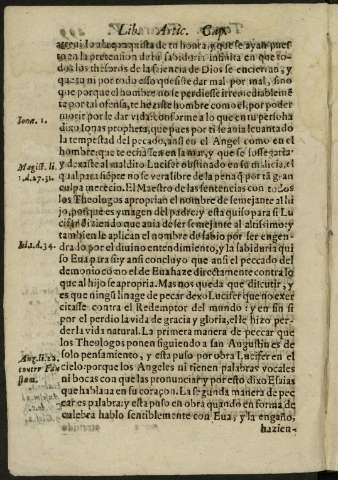 Lib. Artic. Cap.
to en la pretension de la sabiduria infinita en que to-
dos los thesoros de la sciencia de Dios se encierran, y
que tu ni por todo esso quesiste dar mal por mal, sino
que porque el hombre no se perdiesse irremediableme͂
te por tal ofensa, te heziste hombre como el, por poder
morir por le dar vida: conforme a lo que en tu persona
Ionæ. 1.
dixo Ionas propheta, que pues por ti se auia leuantado
la tempestad del pecado, ansi en el Angel como en el
hombre: que te echassen en la mar, y que se sossegaria:
y dexaste al maldito Lucifer obstinado en su malicia,
Magist. li.
1.d.27.31.
qual para sie͂pre no se vera libre de la pena q͂ por ta͂ gran
culpa merecio. El Maestro de las sentencias con todos
los Theologos apropian el nombre de semejante al hi
jo, porque es ymagen del padre: y esta quiso para si Lu
cifer diziendo que auia de ser semejante al altissimo: y
tambien le aplican el nombre de sabio por ser engen-
li.1.d.34.
dra lo por el diuino entendimiento, y la sabiduria qui
so Eua para si: y ansi concluyo que ansi el peccado del
demonio como el de Eua haze directamente contra lo
que al hijo se apropria. Mas nos queda que discutir, y
es que ningu͂ linage de pecar dexo Lucifer que no exer
citasse contra el Redemptor del mundo: y en fin si
por el perdio la vida de gracia y gloria, el le hizo per-
der la vida natural. La primera manera de peccar que
los Theologos ponen siguiendo a san Augustin es de
Aug. li. 22.
contra Fau
stum.
solo pensamiento, y esta puso por obra Lucifer en el
cielo: porque los Angeles ni tienen palabras vocales
ni bocas con que las pronunciar y por esto dixo Esaias
que hablaua en su coraçon. La segunda manera de pec
car es palabra: y esta puso en obra quando en forma de
culebra hablo sentiblemente con Eua, y la engaño,
hazien-